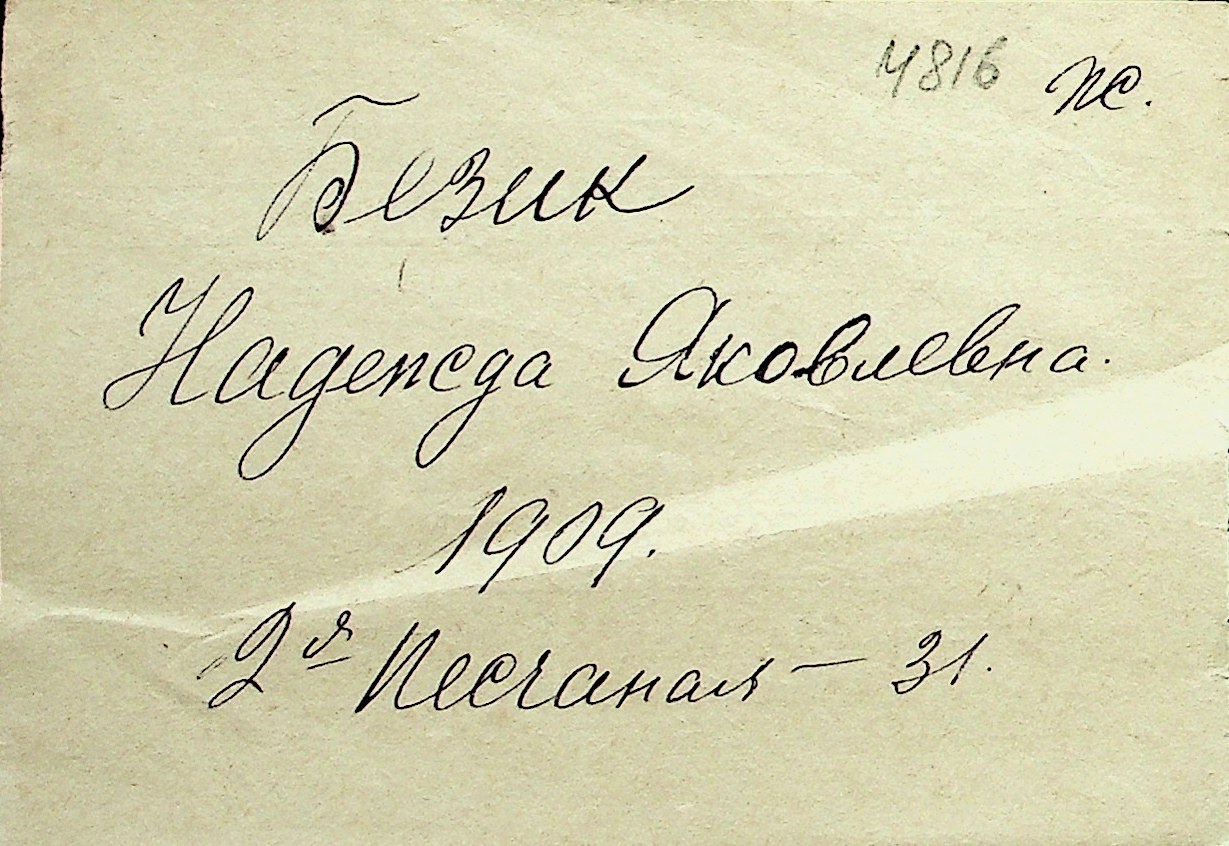 4816 пс.
Безик
Надежда Яковлевна.
1909.
2я Песчаная – 31.